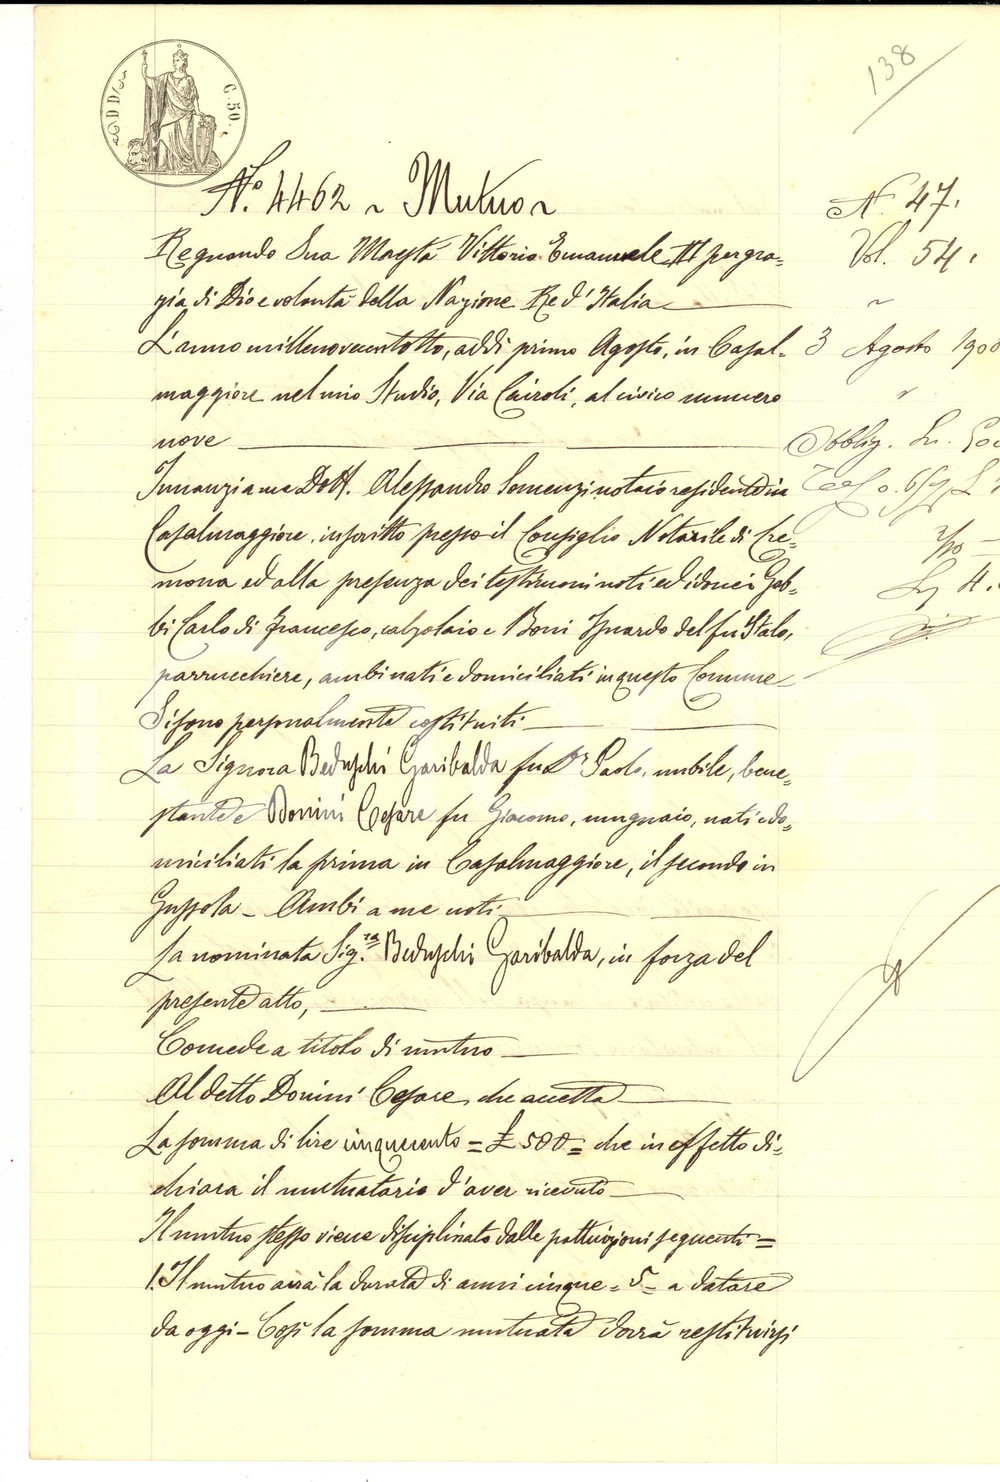 138
C. 50.
N.º 4462 ~ Mutuo ~
N. 47.
Regnando Sua Maestà Vittorio Emanuele III per gra=
Vol. 54.
zia di Dio e volontà della Nazione Re d'Italia
L'anno millenovecentotto, addì primo Agosto, in Casal=
3 Agosto 190
maggiore nel mio Studio, Via Cairoli, al civico numero
nove
Obblig.
Innanzi a me Dott. Alessandro Somenzi notaio residente in
Casalmaggiore, inscritto presso il Consiglio Notarile di Cre=
mona ed alla presenza dei testimoni noti ed idonei Gob=
bi Carlo di Francesco, calzolaio e Boni Isnardo del fu Italo,
parrucchiere, ambi nati e domiciliati in questo Comune
Si sono personalmente costituiti
La Signora Beduschi Garibalda fu Dr Paolo, nubile, bene=
stante e Donini Cesare fu Giacomo, mugnaio, nati e do=
miciliati la prima in Casalmaggiore, il secondo in
Gussola _ Ambi a me noti
La nominata Sig.ra Beduschi Garibalda, in forza del
presente atto,
Concede a titolo di mutuo
Al detto Donini Cesare, che accetta
La somma di lire cinquecento = £ 500 = che in effetto di=
chiara il mutuatario d'aver ricevuto
Il mutuo stesso viene disciplinato dalle pattuizioni seguenti =
1. Il mutuo avrà la durata di anni cinque = 5 = a datare
da oggi _ Così la somma mutuata dovrà restituirsi